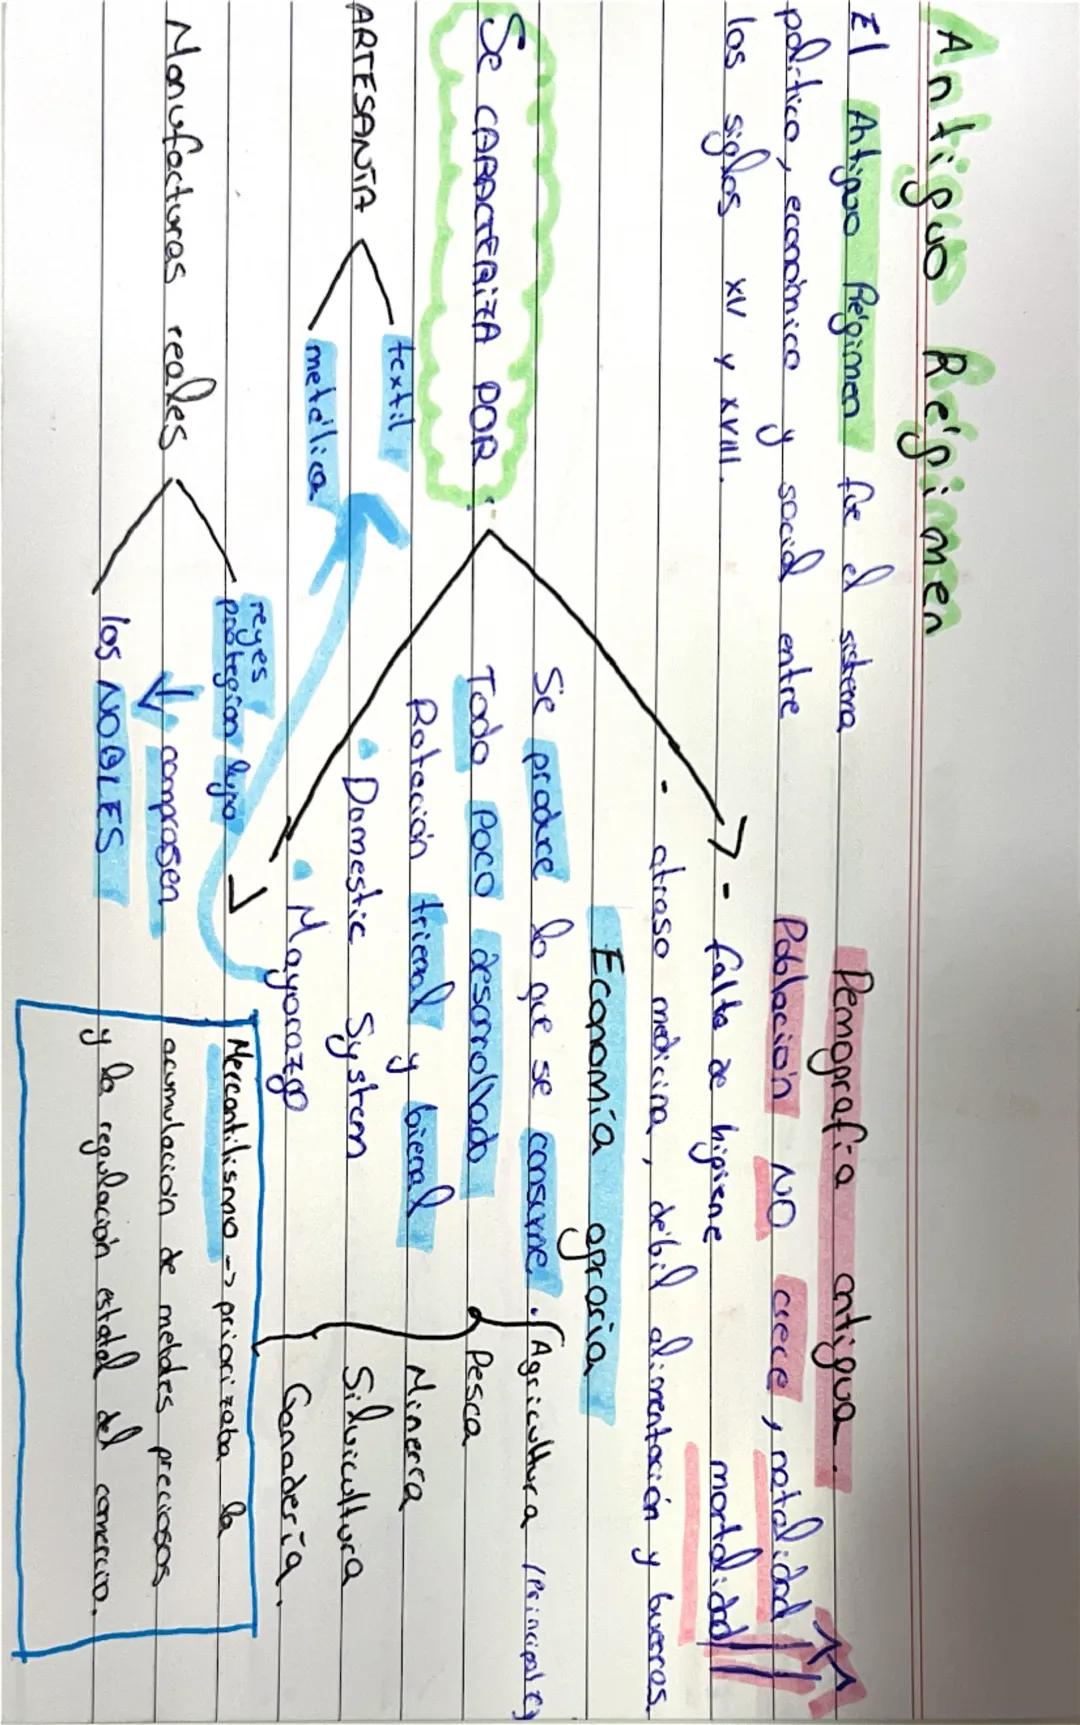 Antiguo Régimen
El Antiguo Régimen fue el sistema
político, económico y social entre
los siglos XV y XVIII.
Demografía antigua.
Población NO crece, natalidad
mortalidad
- falta de higiene
· atraso medicina, débil alimentación y guerras.
SE CARACTERIZA POR:
Economía agraria
Se produce lo que se consume.
Todo poco desarrollado
Rotación trienal y bienal
· Domestic System
· Mayorazgo
Agricultura (Principal
Pesca
Minería
Silvicultura
Ganadería.
ARTESANÍA
textil
metálica
Manufacturas reales
reyes
protegían lujo
↓ comprasen
los NOBLES
Mercantilismo -> priorizaba la
acumulación de metales preciosos
y la regulación estatal del comercio.